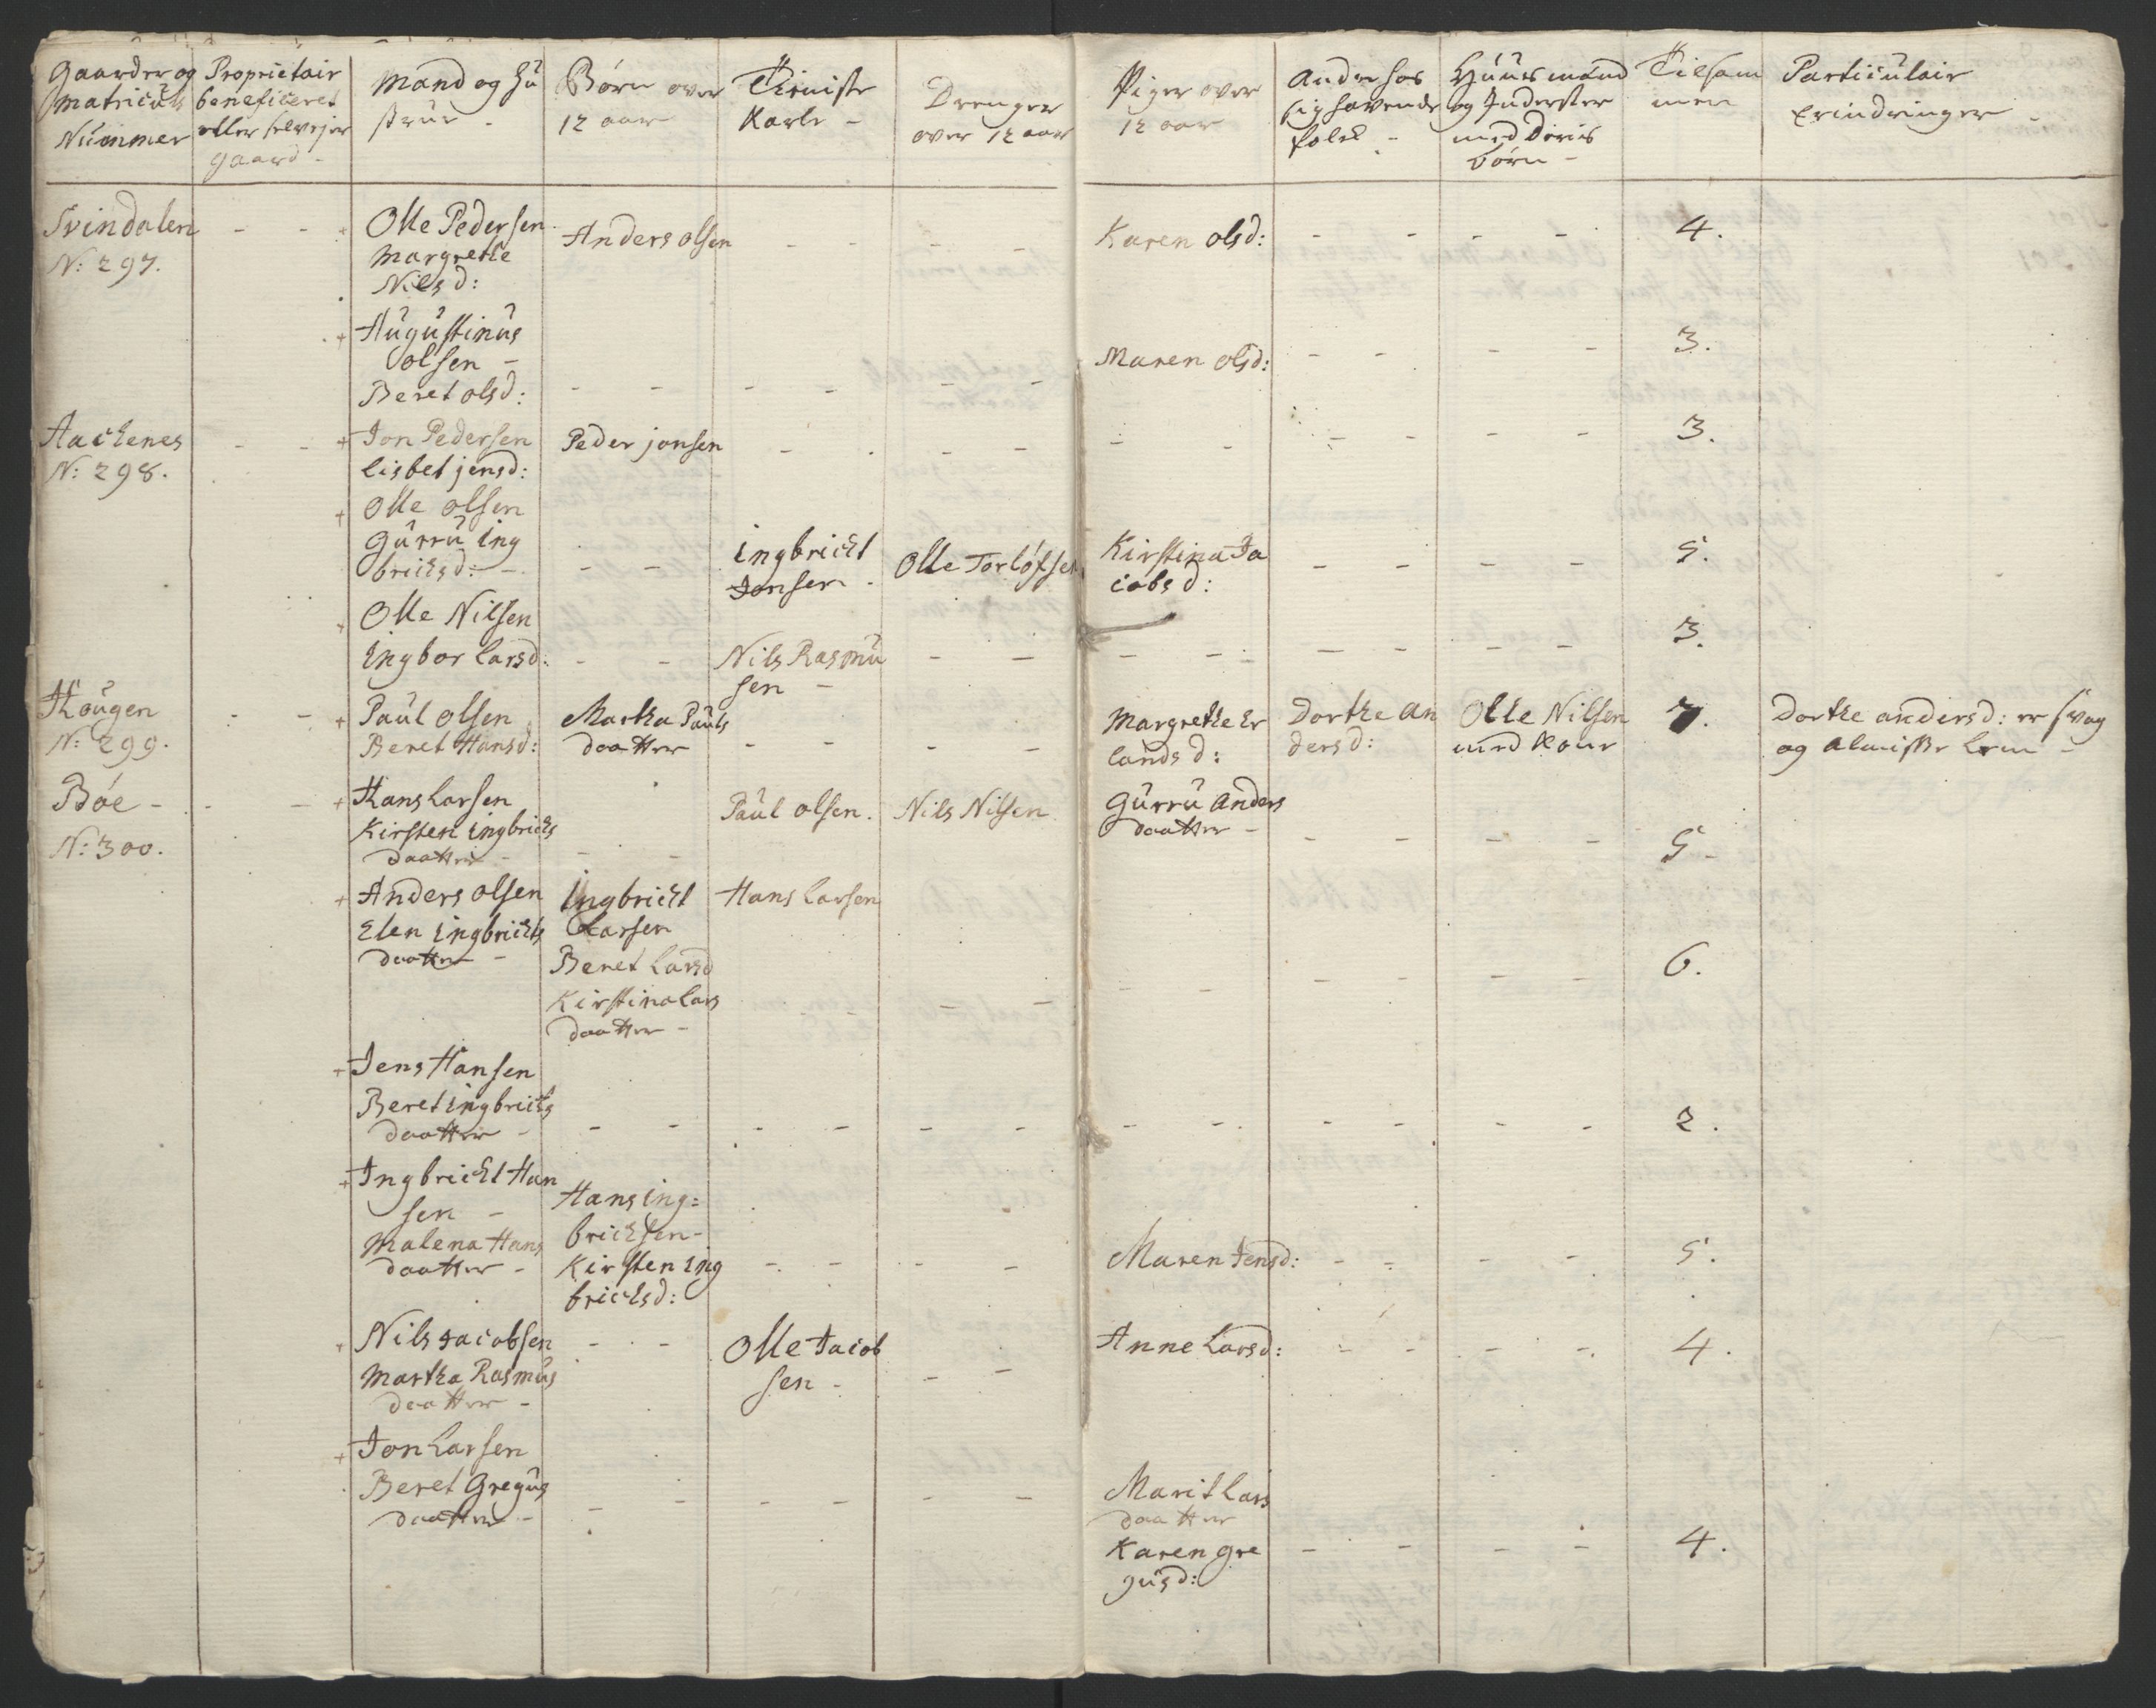 Gaarder og
Matriculs
Nummer
Proprietair
beneficeret
eller selvejer
gaard -
Mand og Hu
strue -
Børn over
12 aar
Tieniste
Karle -
Drenger
over 12 aar
Piger over
12 aar
Andre hos
sig havende
folck -
Huusmænd
og Inderster
med Deris
børn -
Tilsam
men
Particulair
Erindringer -
Svindalen
N: 297.
Olle Pedersen
Margrethe
Nilsd:
Anders olsen
Karen olsd:
4.
Augustinus
olsen -
Beret olsd:
Maren olsd:
3.
Aachenes
N: 298.
Jon Pedersen
Lisbet jensd:
Peder jonsen
3.
Olle olsen
Gurru Ing
brichsd: -
Ingbricht
Jonsen -
Olle Torløfsen
Kirstina Ja
cobsd:
5.
Olle Nilsen
Ingbor Larsd:
Nils Rasmu
sen -
3.
Hougen
N: 299.
Paul olsen
Beret Hansd:
Martha Pauls
daatter
Margrethe Er
landsd:
Dorthe An
dersd:
Olle Nilsen
med Kone
7.
Dorthe andersd: er svag
og Almisse Lem -
Bøe -
N: 300.
Hans Larsen
Kirsten Ingbrichs
daatter -
Paul olsen.
Nils Nilsen
Gurru Anders
daatter -
5 -
Anders olsen
Elen Ingbrichts
daatter -
Ingbricht
Larsen
Beret Larsd
Kirstina Lars
daatter -
Hans Larsen
6.
Jens Hansen
Beret Ingbrichs
daatter -
2.
Ingbricht Han
sen -
Malena Hans
daatter -
Hans Ing=
brichsen -
Kirsten Ing
brichsd:
Maren Jensd:
5.
Nils Jacobsen
Martha Rasmus
daatter -
Olle Jacob
sen -
Anne Larsd:
4.
Jon Larsen
Beret Gregus
daatter -
Marit Lars
daatter
Karen Gre
gusd:
4.